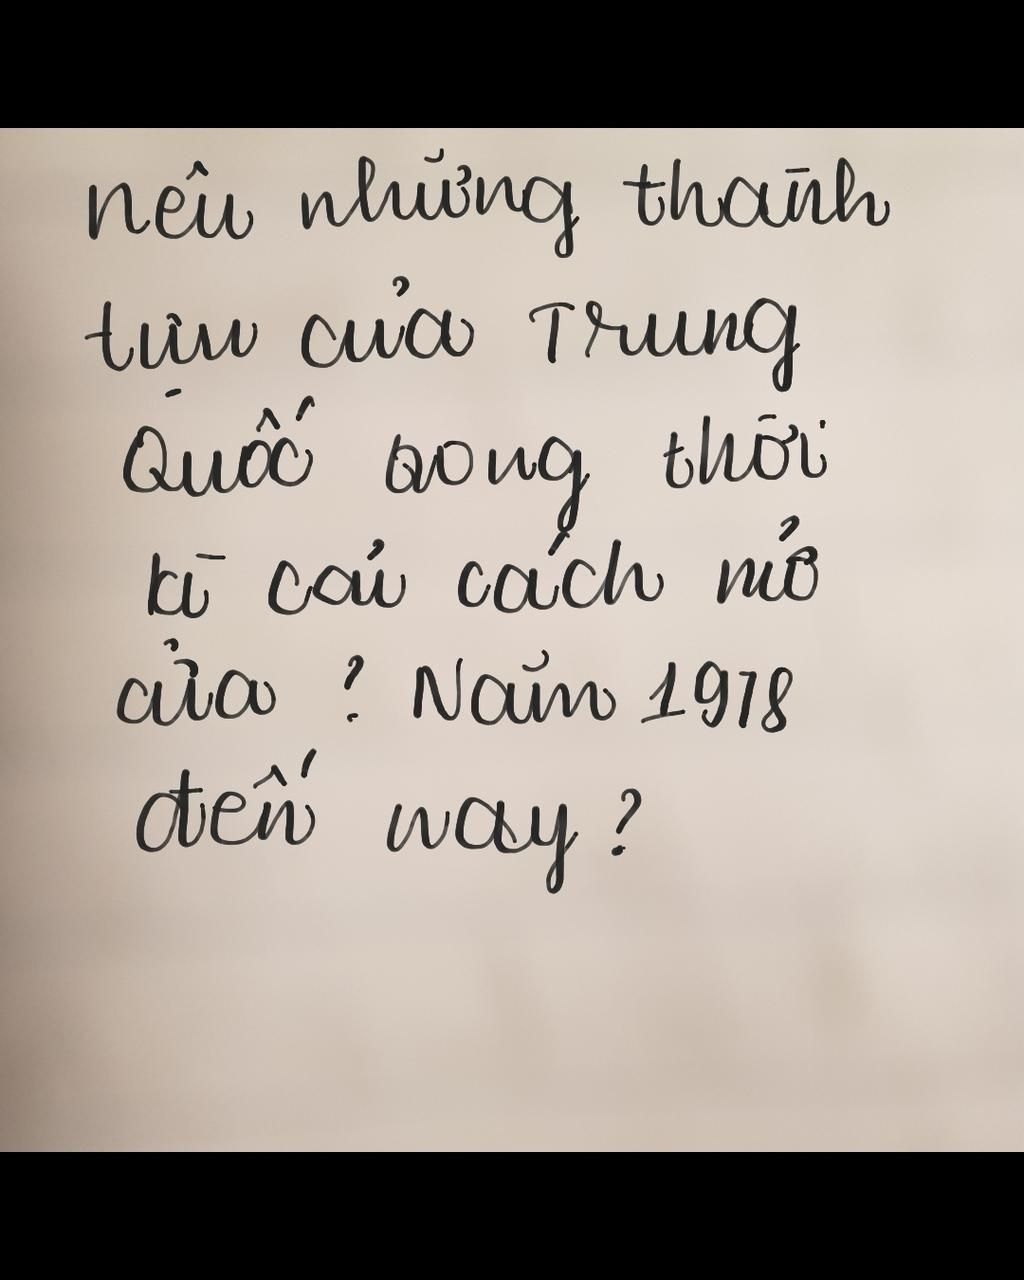 nêu những thành
tựu của Trung
Quốc trong thời
kì cải cách mở
cửa ? Năm 1978
đến nay ?